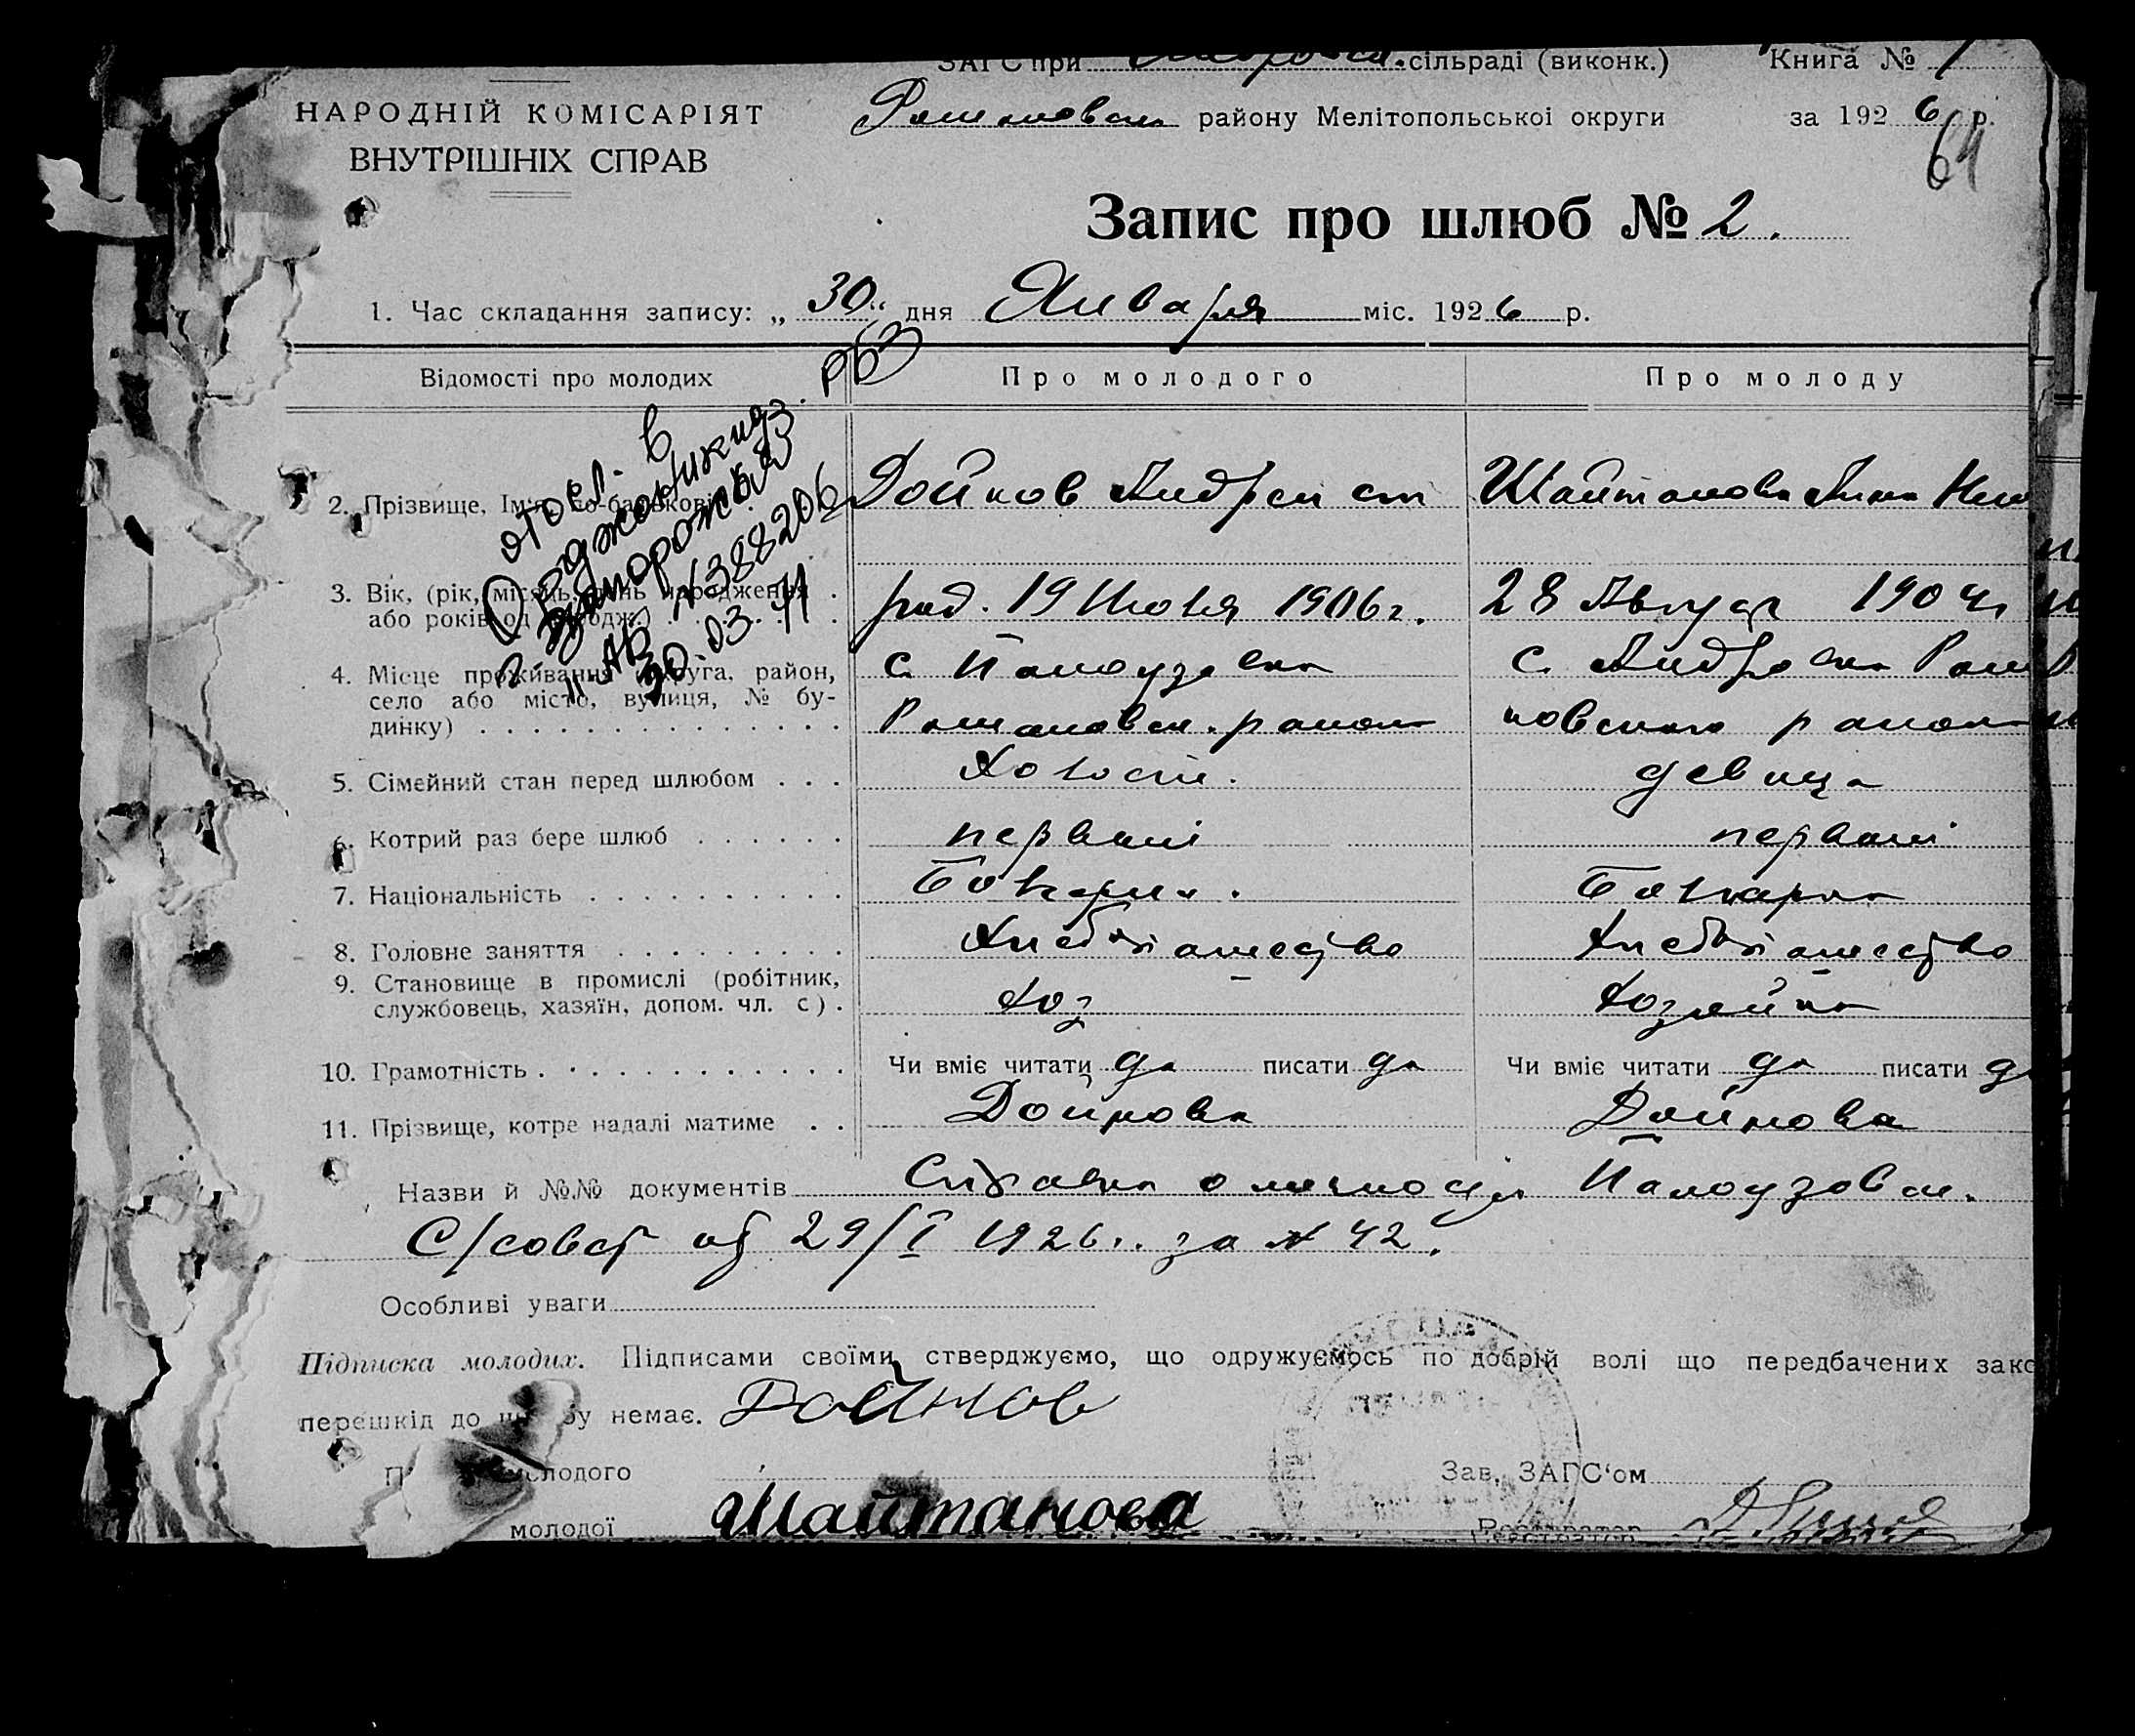 ЗАГС при сільраді (виконк.) Книга № 1
НАРОДНІЙ КОМІСАРІЯТ
ВНУТРІШНІХ СПРАВ
району Мелітопольської округи за 1926 р.
64
Запис про шлюб № 2.
1. Час складання запису: „30“ дня Января міс. 1926 р.
Відомості про молодих Про молодого Про молоду
отосл. в
Орджоникидз. РБЗ
г. Запорожья
"АВ N 388206
30.03.71
2. Прізвище, Ім'я, по-батькові Дойнов Андрей ст Шайтанова Анна
3. Вік, (рік, місяць, день народження . род. 19 Июля 1906 г. 28 Август 1904
або років од народж.)
4. Місце проживання (округа, район, с. с.
село або місто, вулиця, № бу-
динку) Романовск. район новского район
5. Сімейний стан перед шлюбом . . . Холост. девица
6. Котрий раз бере шлюб . . . . . . первый первый
7. Національність . . . . . . . . . . Болгарин. Болгарка
8. Головне заняття . . . . . . . . . Хлебопашество Хлебопашество
9. Становище в промислі (робітник,
службовець, хазяїн, допом. чл. с) . Хоз Хозяйка
10. Грамотність . . . . . . . . . . . . Чи вміє читати да писати да Чи вміє читати да писати да
11. Прізвище, котре надалі матиме . . Дойнова Дойнова
Назви й №.№ документів Справка о личности
С/совет от 29/I 1926.. за № 42.
Особливі уваги
Підписка молодих. Підписами своїми стверджуємо, що одружуємось по добрій волі що передбачених зако
перешкід до шлюбу немає. Дойнов
молодого Зав. ЗАГС‘ом
молодої Шайтанова Реєстратор